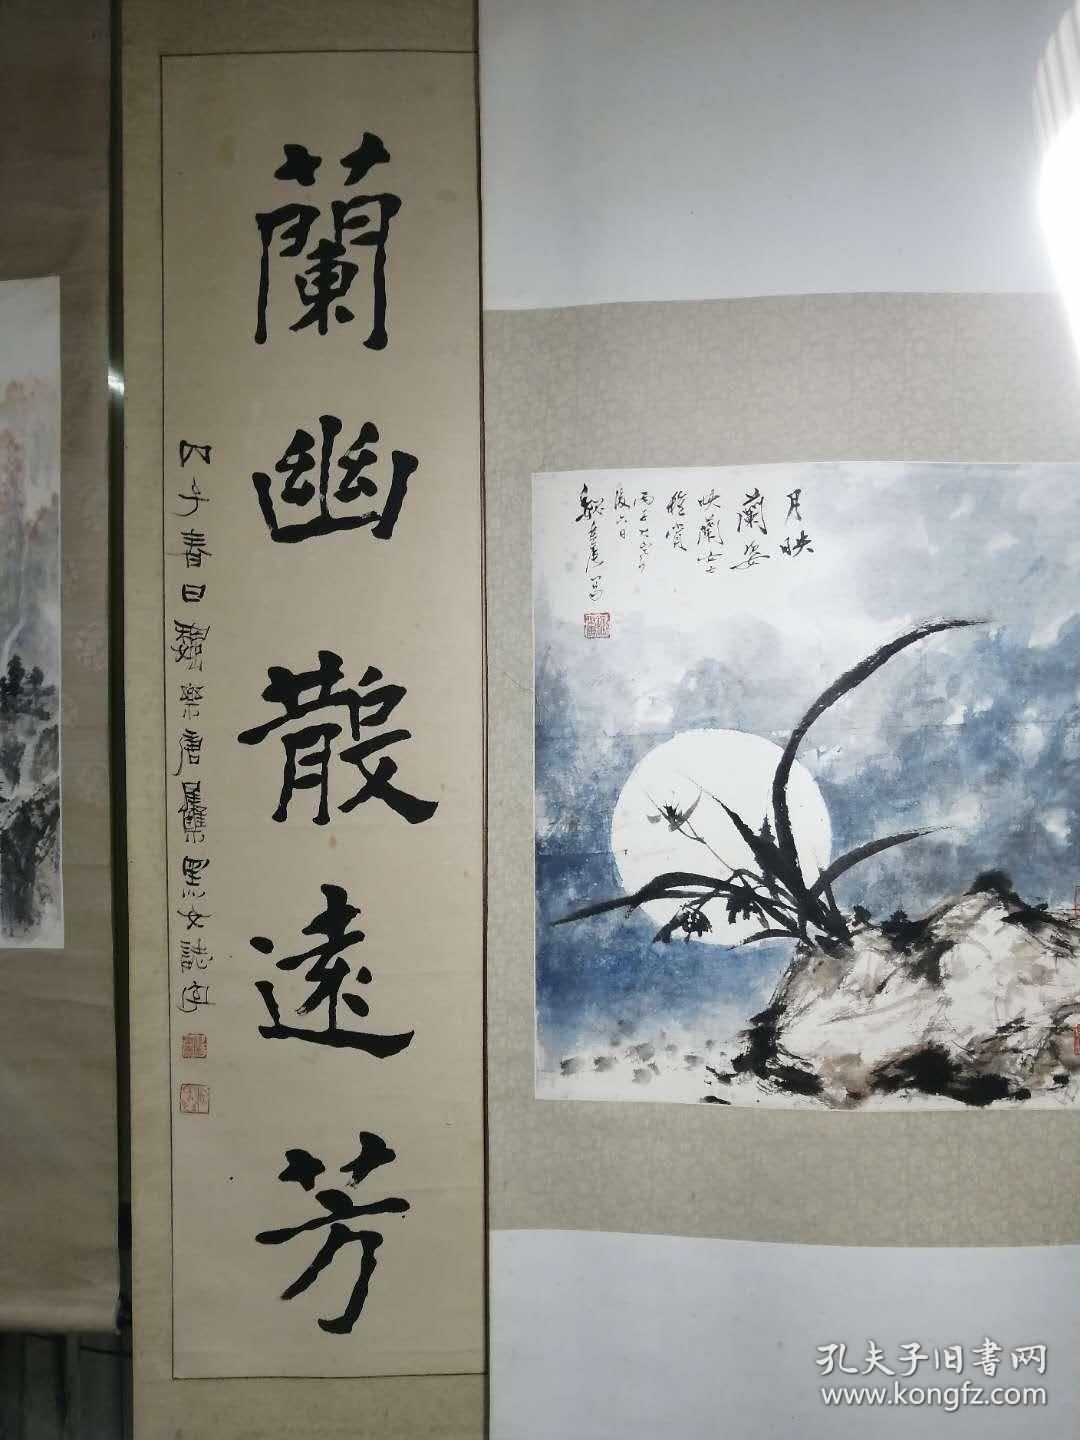 蘭幽散遠芳
丙子春日魏樂唐集黑女誌字
月映
蘭姿
映蘭女士
雅賞
後六日
魏樂唐寫
孔夫子旧書网
www.kongfz.com